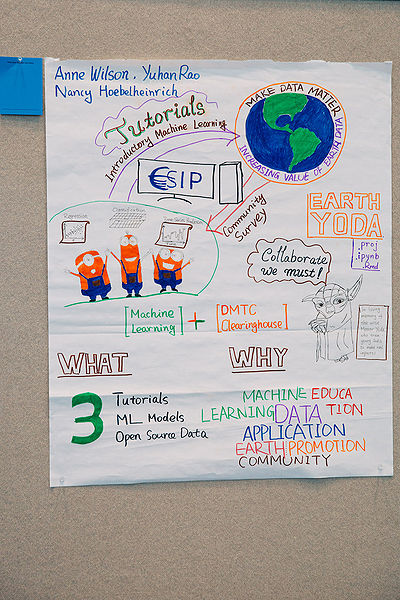 Anne Wilson, Yuhan Rao
Nancy Hoebelheinrich
Tutorials
Introductory Machine Learning
MAKE DATA MATTER
INCREASING VALUE OF EARTH DATA
ESIP
Community
Survey
Regression
Classification
Time-Series Prediction
EARTH
YODA
.proj
.ipynb
.kmd
Collaborate
we must!
[Machine
Learning]
+
[DMTC
Clearinghouse]
In loving
memory of
the wise
Master Yoda
WHAT
WHY
3
Tutorials
ML Models
Open Source Data
MACHINE EDUCA
LEARNING DATA TION
APPLICATION
EARTH PROMOTION
COMMUNITY